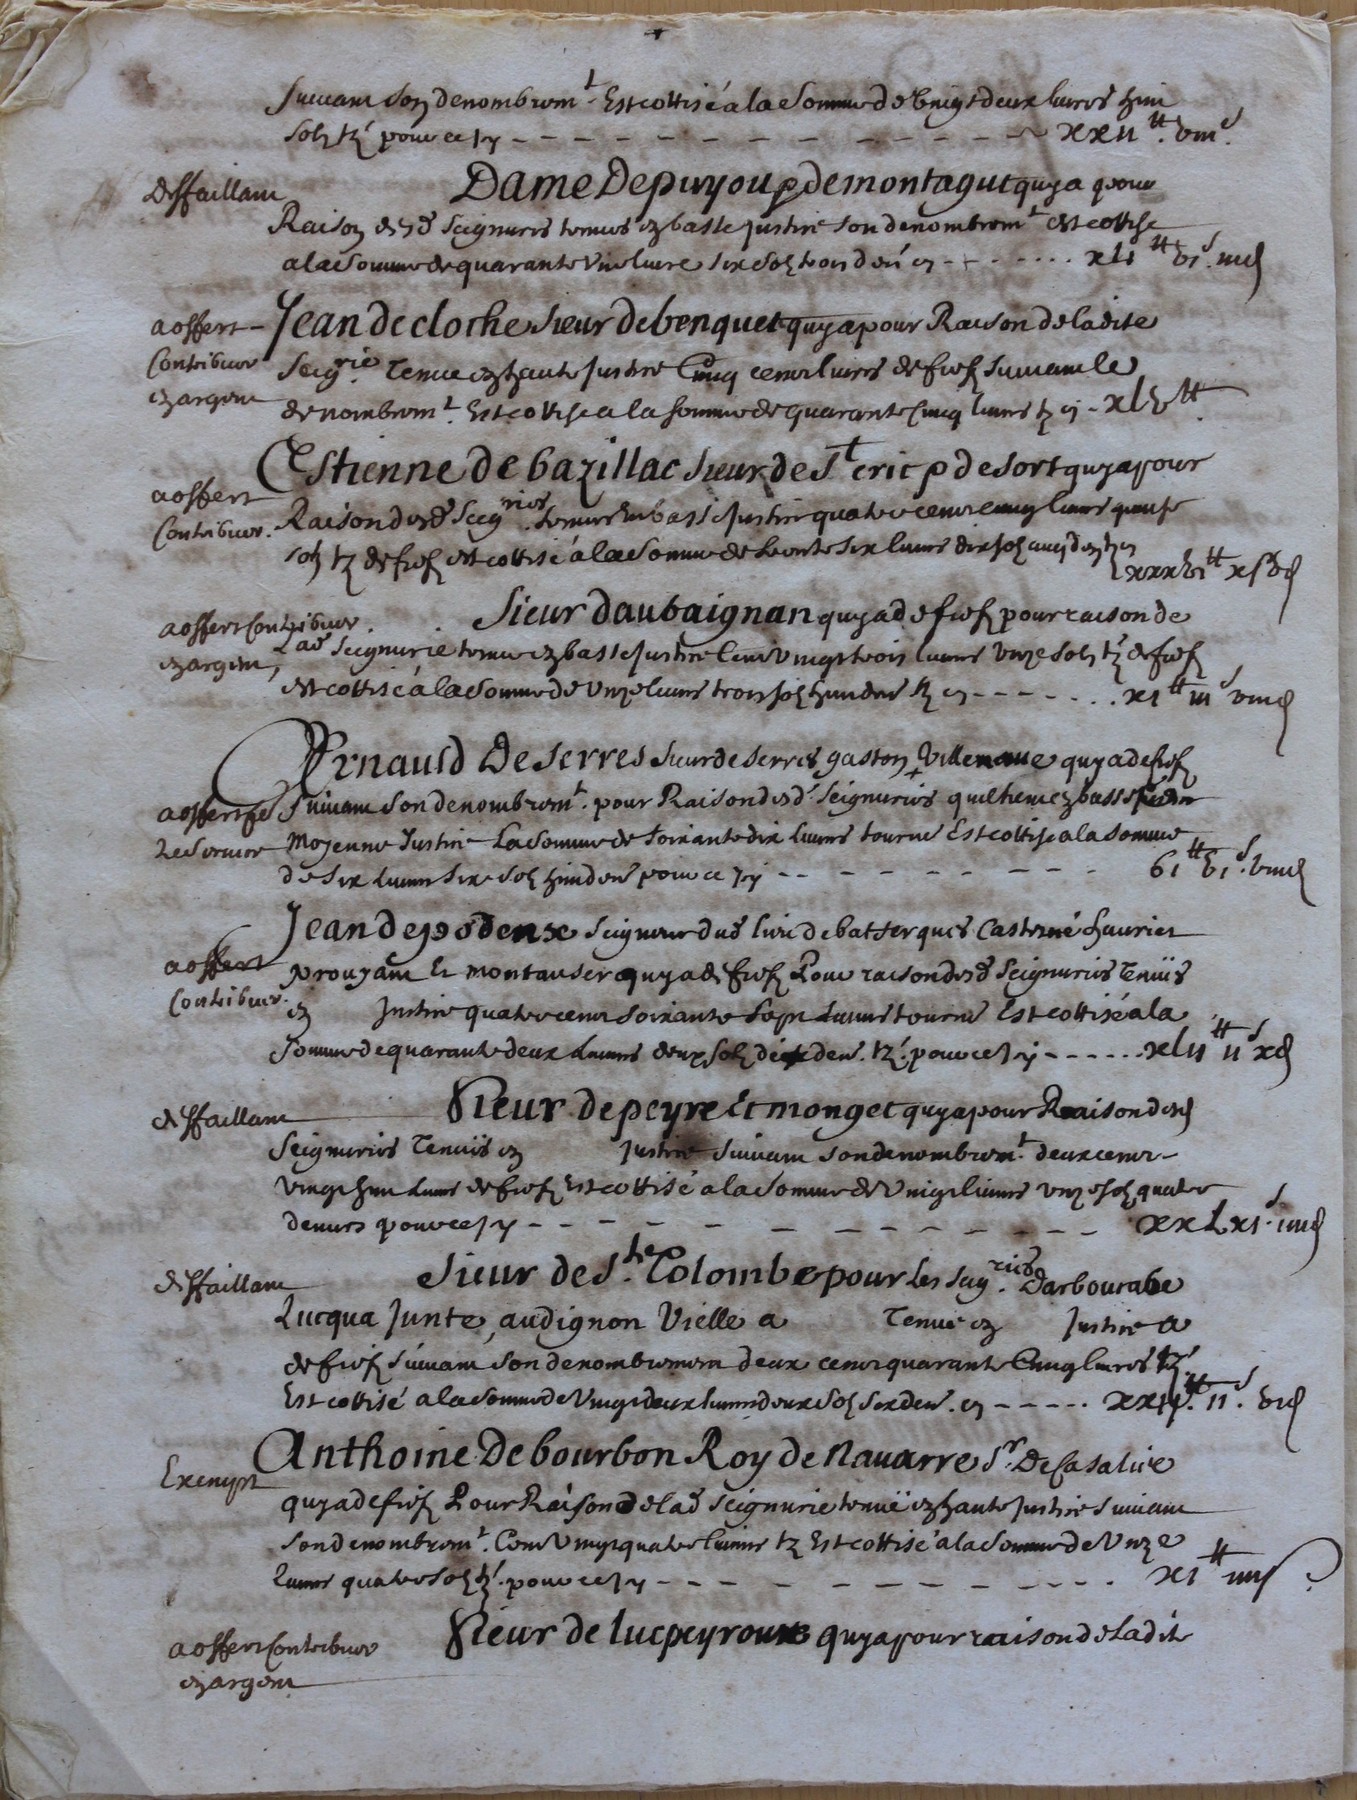 suivant son denombremt. Est cottisé a la somme de vingt deux livres huit
solz tz pour ce cy - - - - - - - - - XXII lt. VIII s.
deffaillant
Dame de puyou p de montagut quy a pour
Raison desd seigneuries tenues en basse justice son denombremt est cottisé
a la somme de quarante une livre six solz trois den cy - - - - XLI lt VI s. III d
a offert
Contribuer
en argent
Jean de cloche sieur de benquet quy a pour Raison de ladite
seigrie. Tenue en haute justice Cinq cens livres de fief suivant le
denombremt. Est cottisé a la somme de quarante Cinq livres tz cy - XLV lt
a offert
Contribuer.
Estienne de bazillac sieur de St cric p de sort quy a pour
Raison desd seigries. tenues En basse justice quatre cens cinq livres quinze
solz tz de fief est cottisé a la somme de trente six livres dix solz cinq den tz cy
XXXVI lt X s V d
a offert Contribuer
en argent,
Sieur daubaignan quy a de fief pour raison de
Lad seigneurie tenue en basse justice Cent vingt trois livres unze solz tz de fief
est cottisé a la somme de unze livres trois solz huit den tz cy - - - - - - XI lt III s VIII d
a offert se
Le servir
Arnauld De serres sieur de serres gaston Villenave quy a de fief
suivant son denombremt. pour Raison desd. seigneuries quil tient en basse
Moyenne Justice La somme de soixante dix livres tourn Est cottisé a la somme
de six livres six solz huit den pour ce cy - - - - - - - - VI lt VI s. VIII d
a offert
Contribuer.
Jean de podenx seigneur dud lieu de batserques Casterné hauriet
prouyan Et montauser quy a de fief Pour raison desd seigneuries Tenües
en Justice quatre cens soixante sept livres tourn Est cottisé a la
somme de quarante deux livres deux solz dix den. tz. pour ce cy - - - - - - XLII lt II s X d
deffaillant
Sieur de peyre Et monget quy a pour Raison desd
seigneuries Tenües en justice suivant son denombremt. deux cens
vingt huit livres de fief Est cottisé a la somme de Vingt livres unze solz quatre
deniers pour ce cy - - - - - - - - - - - XX L XI s. IIII d
deffaillant
Sieur de Ste. Colombe pour les seigries. Darboucabe
Lucqua Junte, audignon Vielle a Tenue en Justice a
de fief suivant son denombrement deux cens quarante Cinq livres tz
Est cottisé a la somme de Vingt deux livres deux solz six den. cy - - - - - XXII lt. II s. VI d
Exempt
Anthoine De bourbon Roy de Navarre Sr. De Casalive
quy a de fief Pour Raison de lad seigneurie tenuë en haute justice suivant
son denombremt. Cent Vingt quatre livres tz Est cottisé a la somme de Unze
livres quatre solz tz. pour ce cy - - - - - - - - XI lt IIII s
a offert Contribuer
en argent
Sieur de lucpeyrous quy a pour raison de ladite